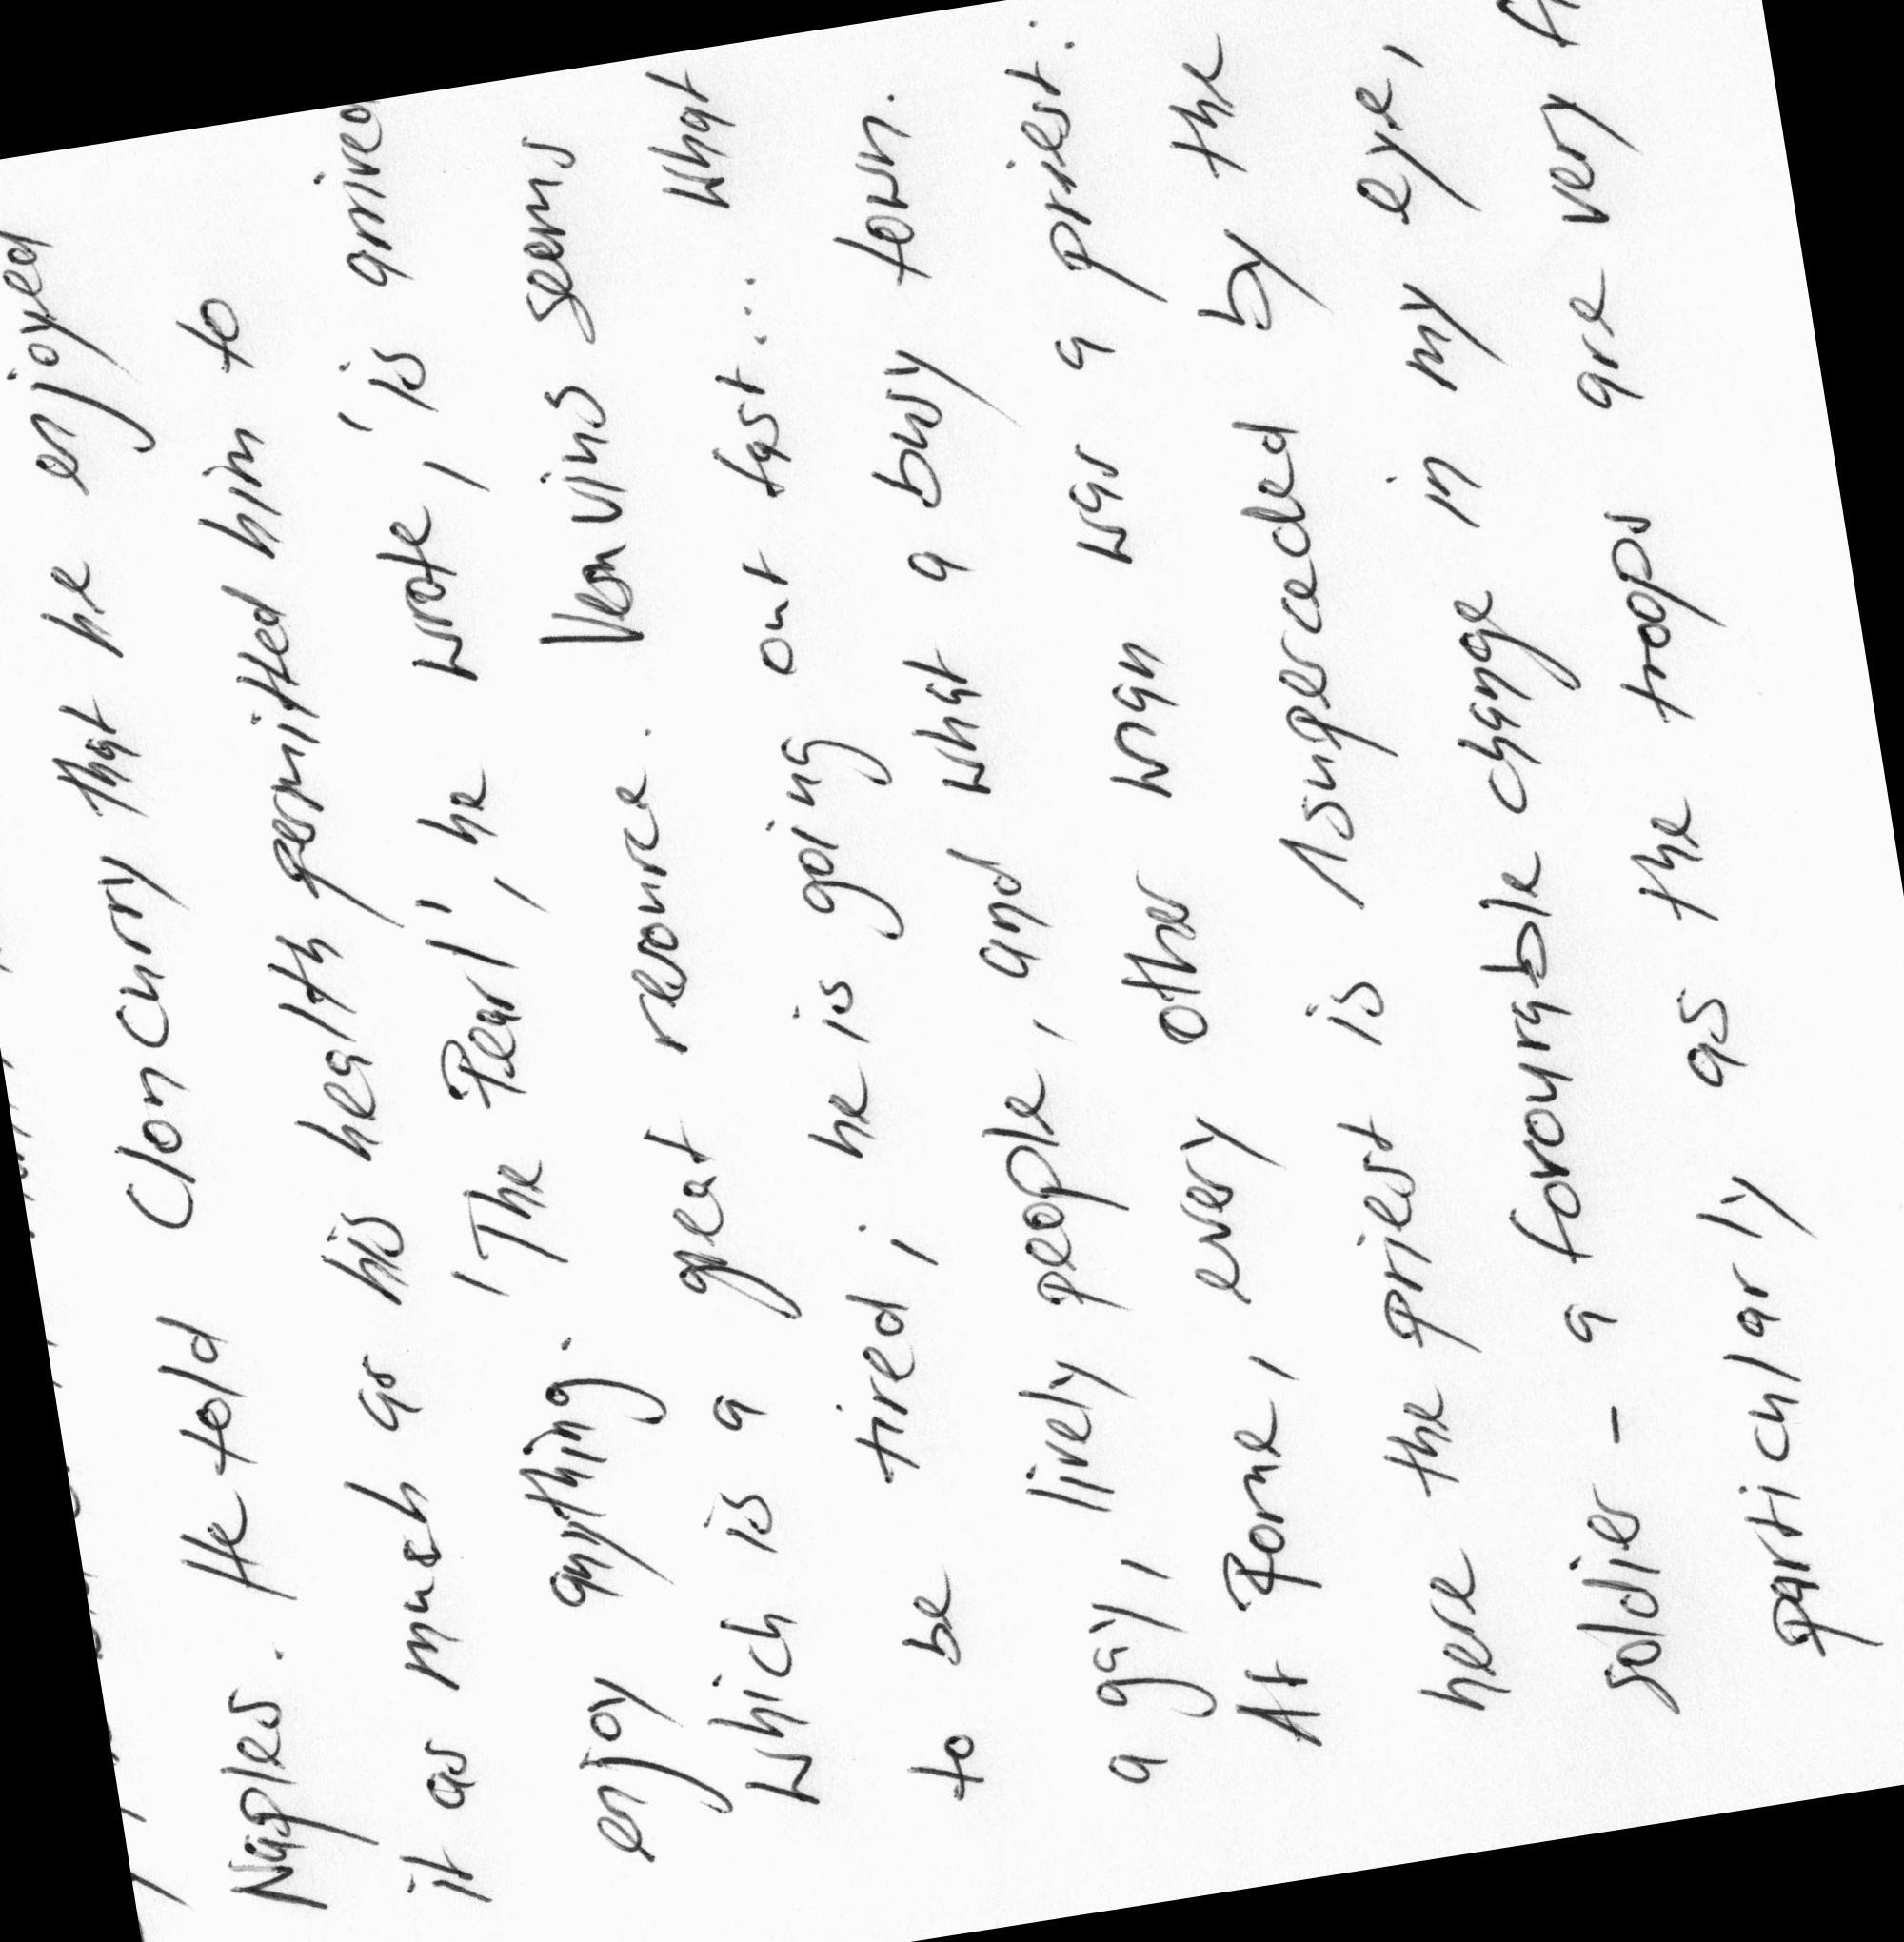 Naples. He told Cloncurry that he enjoyed
it as much as his health permitted him to
enjoy anything. 'The Pearl', he wrote, 'is arrived
which is a great resource. Vesuvius seems
to be tired; he is going out fast... What
a gay, lively people, and what a busy town.
At Rome, every other man was a priest:
here the priest is superceded by the
soldier - a favourable change in my eye,
particularly as the troops are very